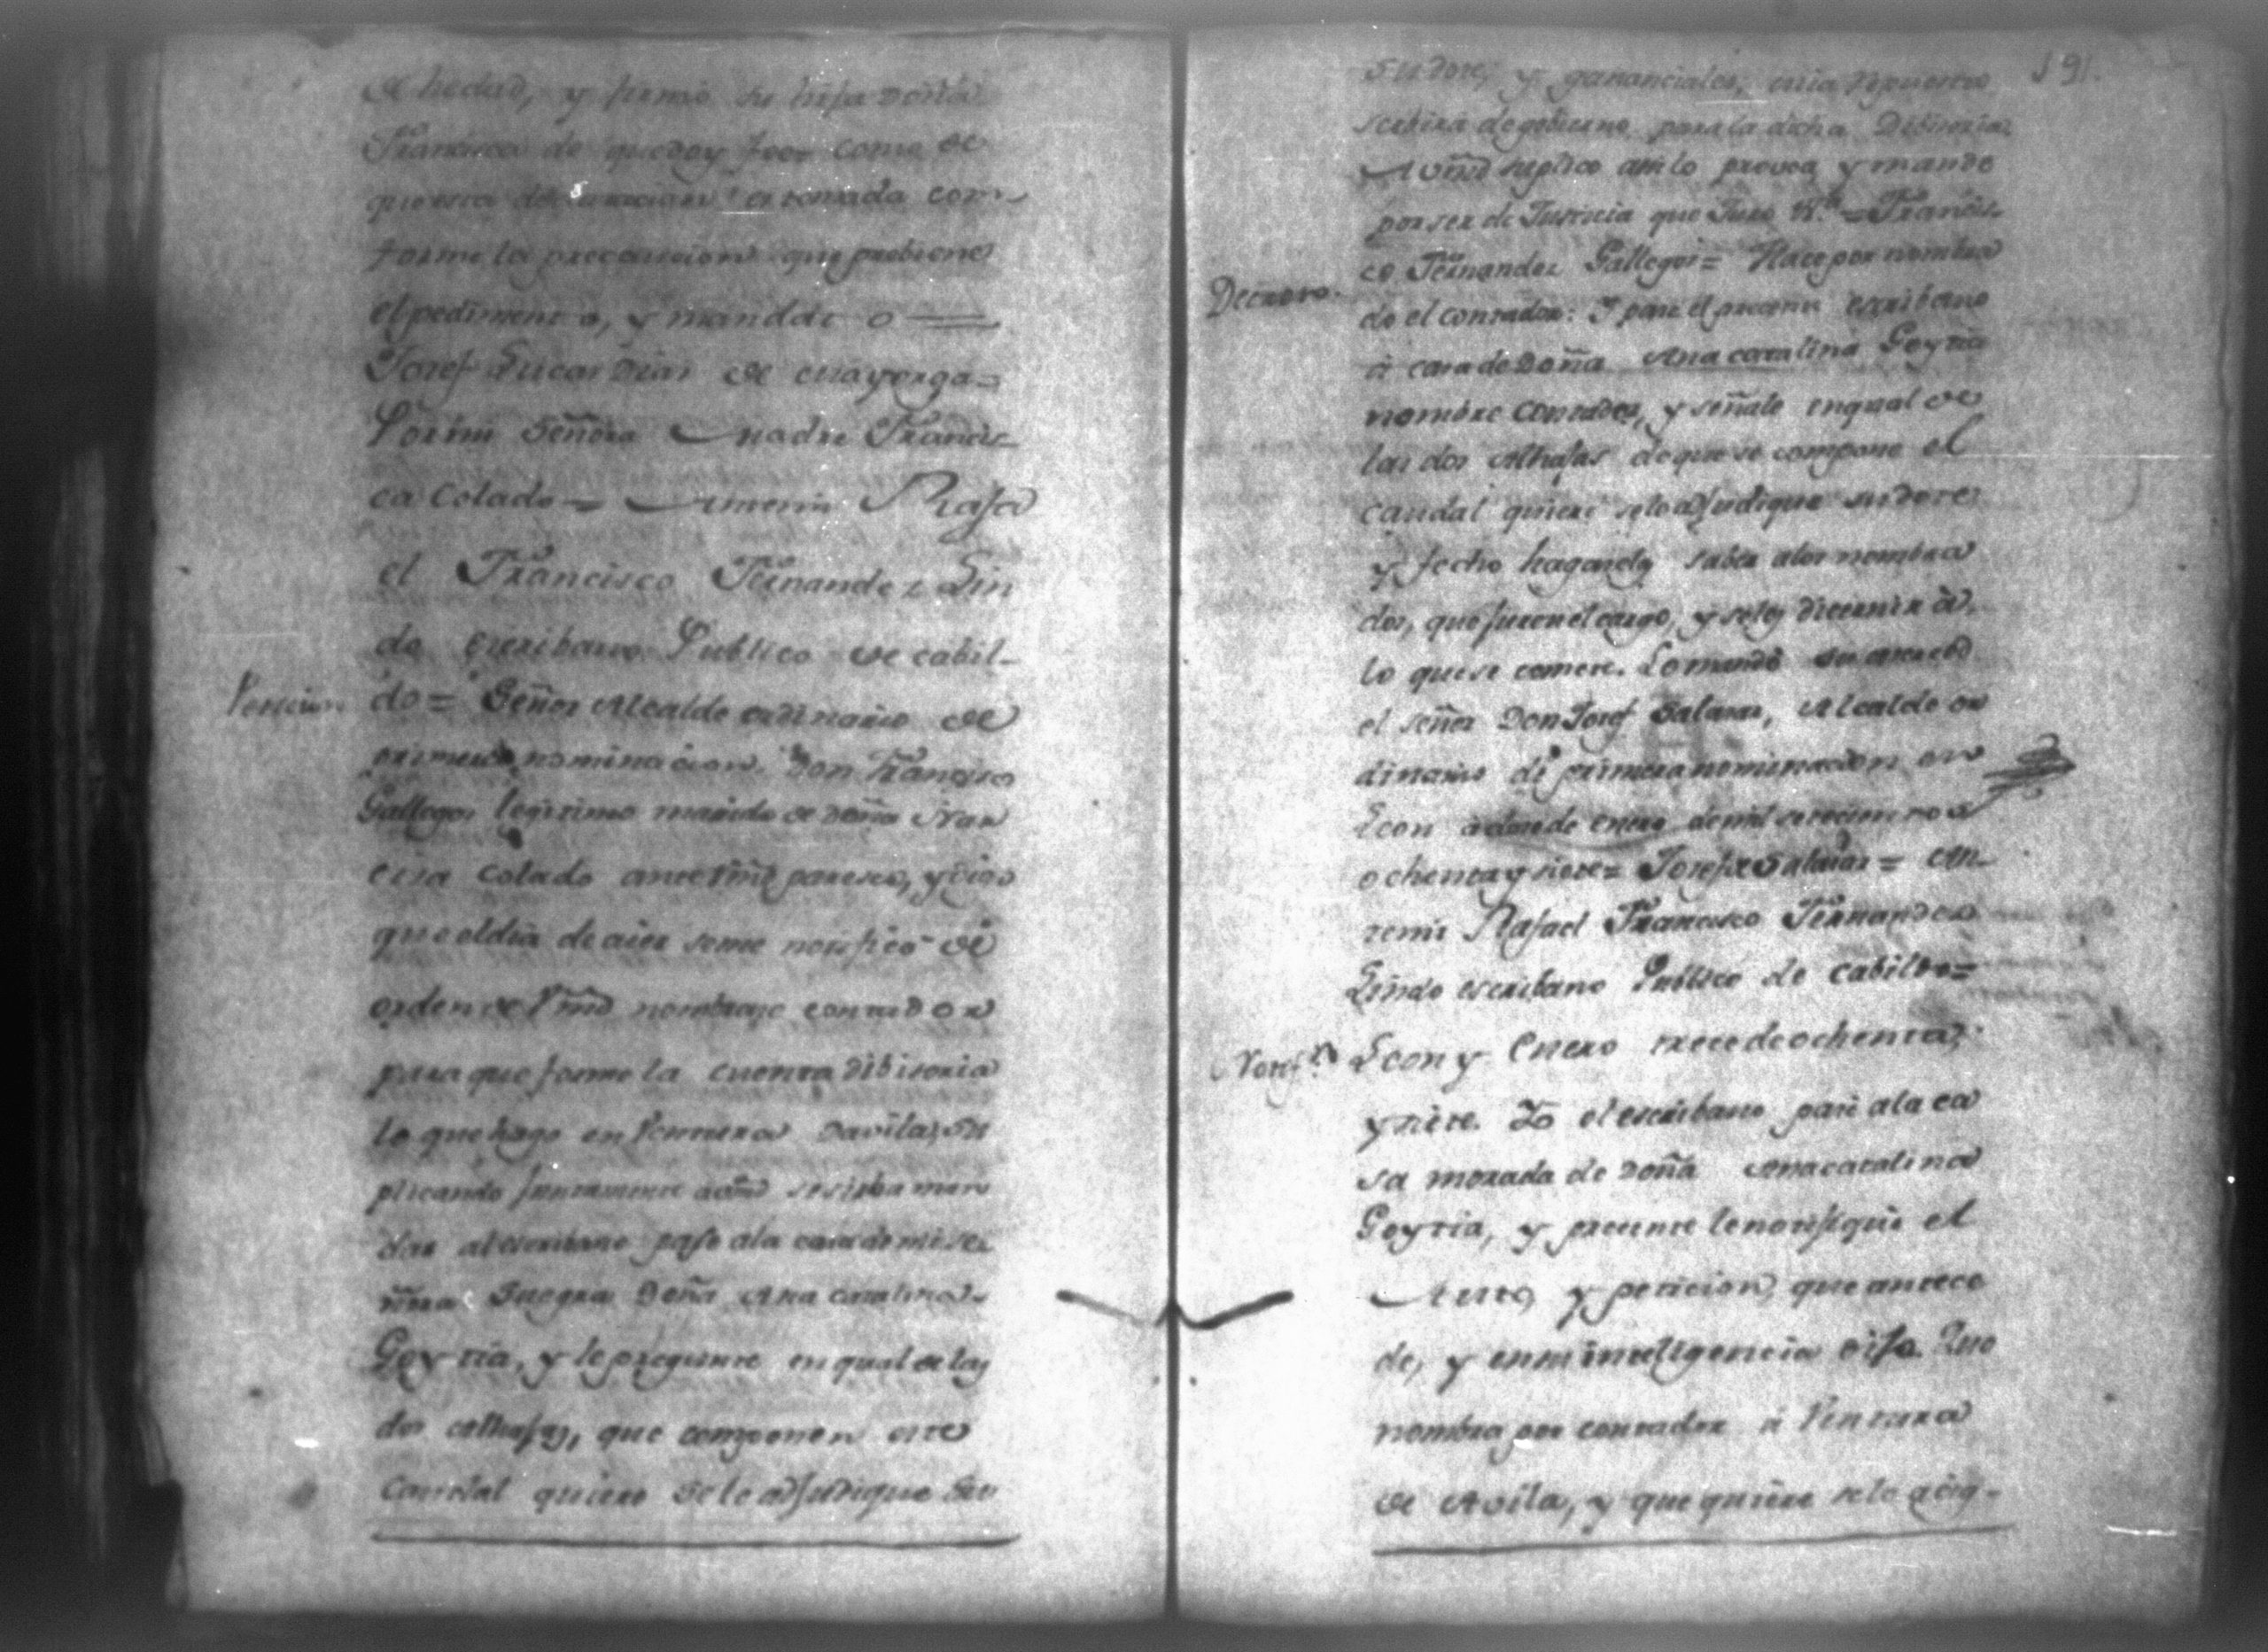 de hedad, y firmó su hija doña
Francisca de que doy fee como de
que esta declaracion es tomada con-
forme la precaucion que previene
el pedimento, y mandato =
Josef Lucas Dias de Mayorga =
Por mi Señora Madre Francis-
ca Colado = Antemi Rafa
el Francisco Fernandez Lin
do escribano Publico de cabil-
Peticion. do = Señor Alcalde ordinario de
primera nominacion. Don Francisco
Gallegos legitimo marido de doña Fran
cisca Colado ante Vmd paresco, y digo
que el dia de aier se me notificó de
orden de Vmd nombrase contador
para que forme la cuenta dibisoria
lo que hago en Ventura Davila, su
plicando juntamente a Vmd se sirba man
dar al escribano pase a la casa de mi se
ñora Suegra Doña Ana Catalina
Goytia, y le pregunte en qual de las
dos alhajas, que componen este
caudal quiere se le adjudique su
191.
su dote, y gananciales, cuia respuesta
serbira de gobierno para la dicha Dibisoria
A Vmd suplico asi lo provea y mande
por ser de Justicia que Juro &.ª = Francis-
co Fernandez Gallegos = Hace por nombra
Decreto. do el contador: I pase el presente escribano
à casa de Doña Ana catalina Goytia
nombre contador, y señale en qual de
las dos Alhajas de que se compone el
caudal quiere se le adjudique su dote
y fecho hagasele saber a los nombra
dos, que juren el cargo, y se les discernirà
lo que se comete. Lo mandò su merced
el señor Don Josef Salazar, Alcalde or
dinario de primera nominacion en
Leon à doce de enero de mil setecientos
ochenta y siete = Josef Salazar = An
temi Rafael Francisco Fernandez
Lindo escribano Publico de cabildo =
Notif.n Leon y Enero trece de ochenta,
y siete. Yo el escribano pasé a la ca
sa morada de doña Ana catalina
Goytia, y presente le notifiqué el
Auto, y peticion, que antece
de, y en su inteligencia dijo. Que
nombra por contador à Ventura
de Avila, y que quiere se le asig-